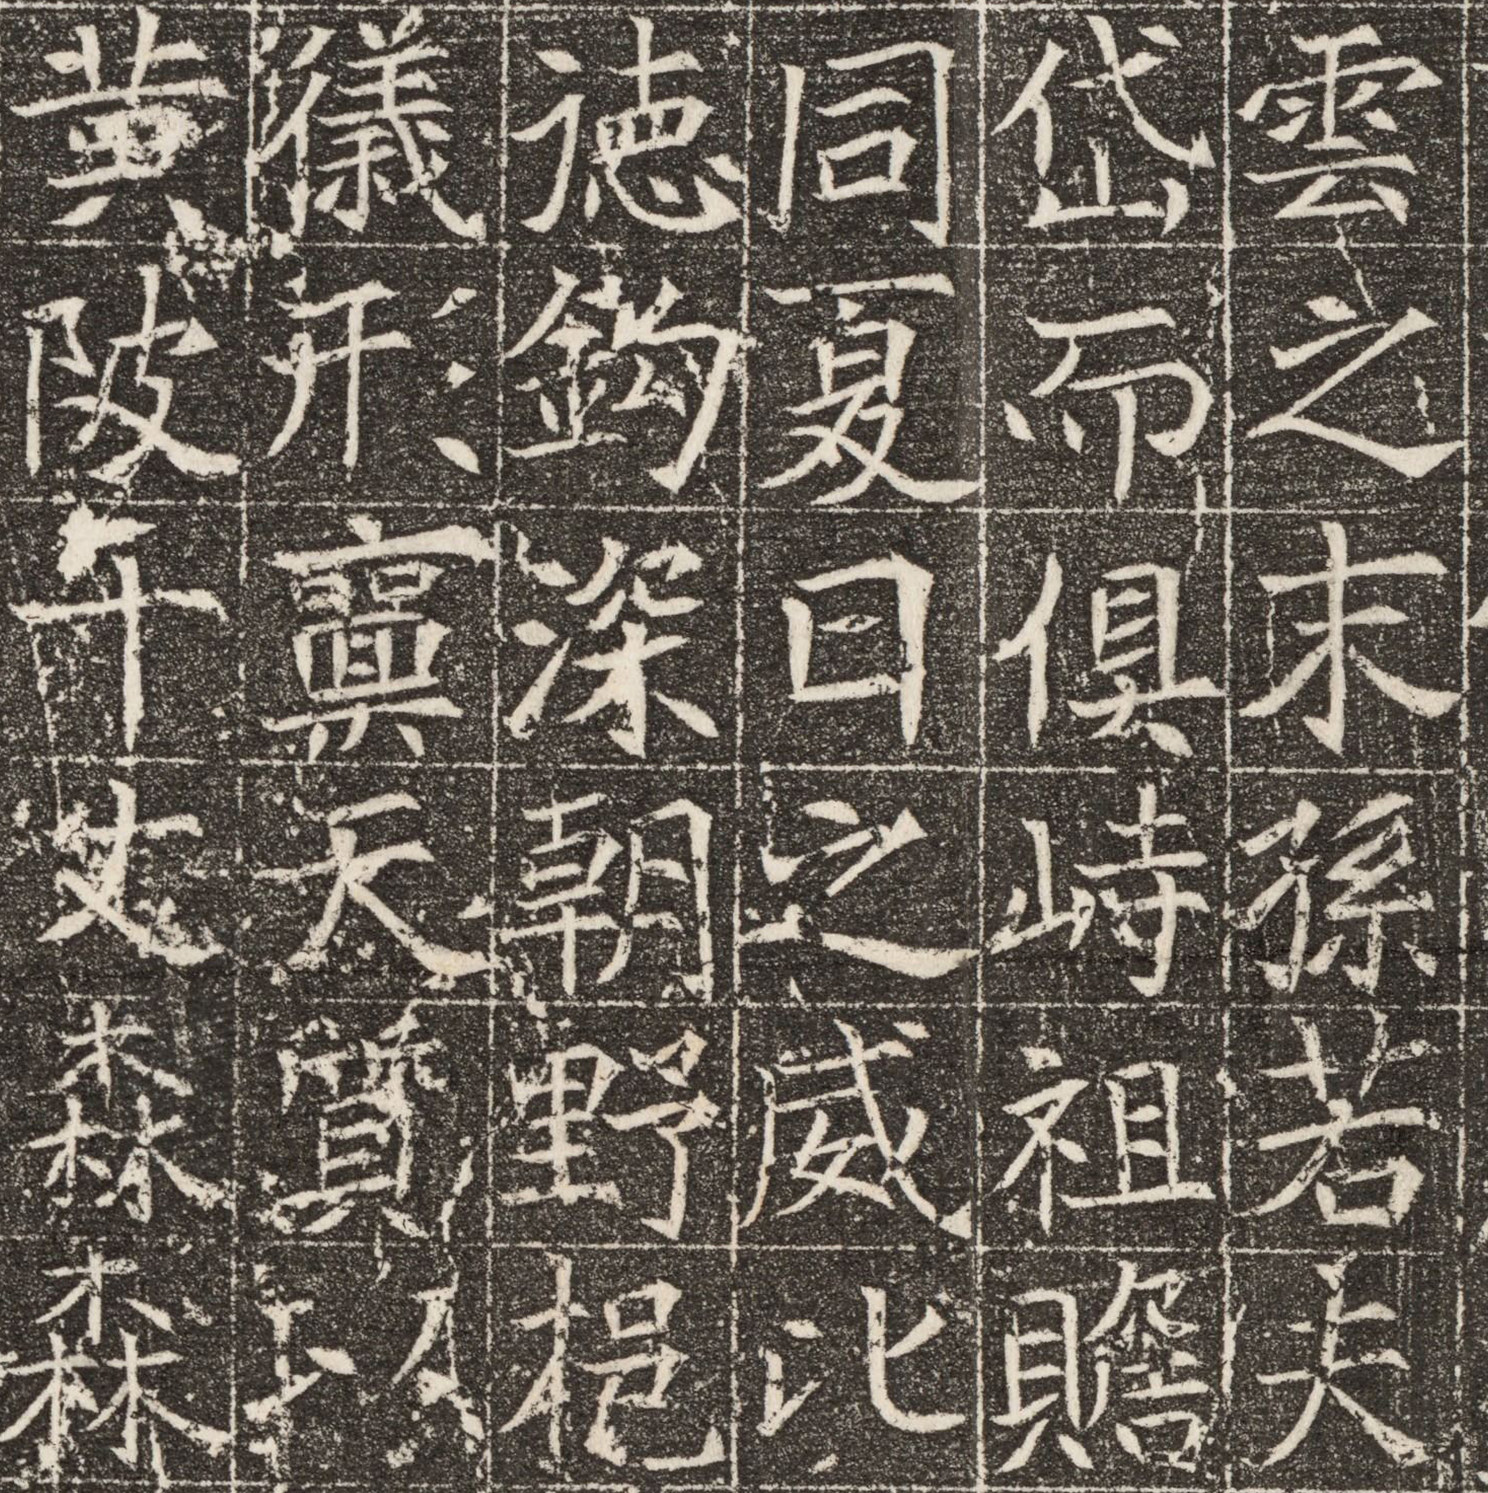 雲之末孫若夫
岱而俱峙祖贍
同夏日之威比
徳鈎深朝野挹
儀形稟天質以
黄陂千丈森森